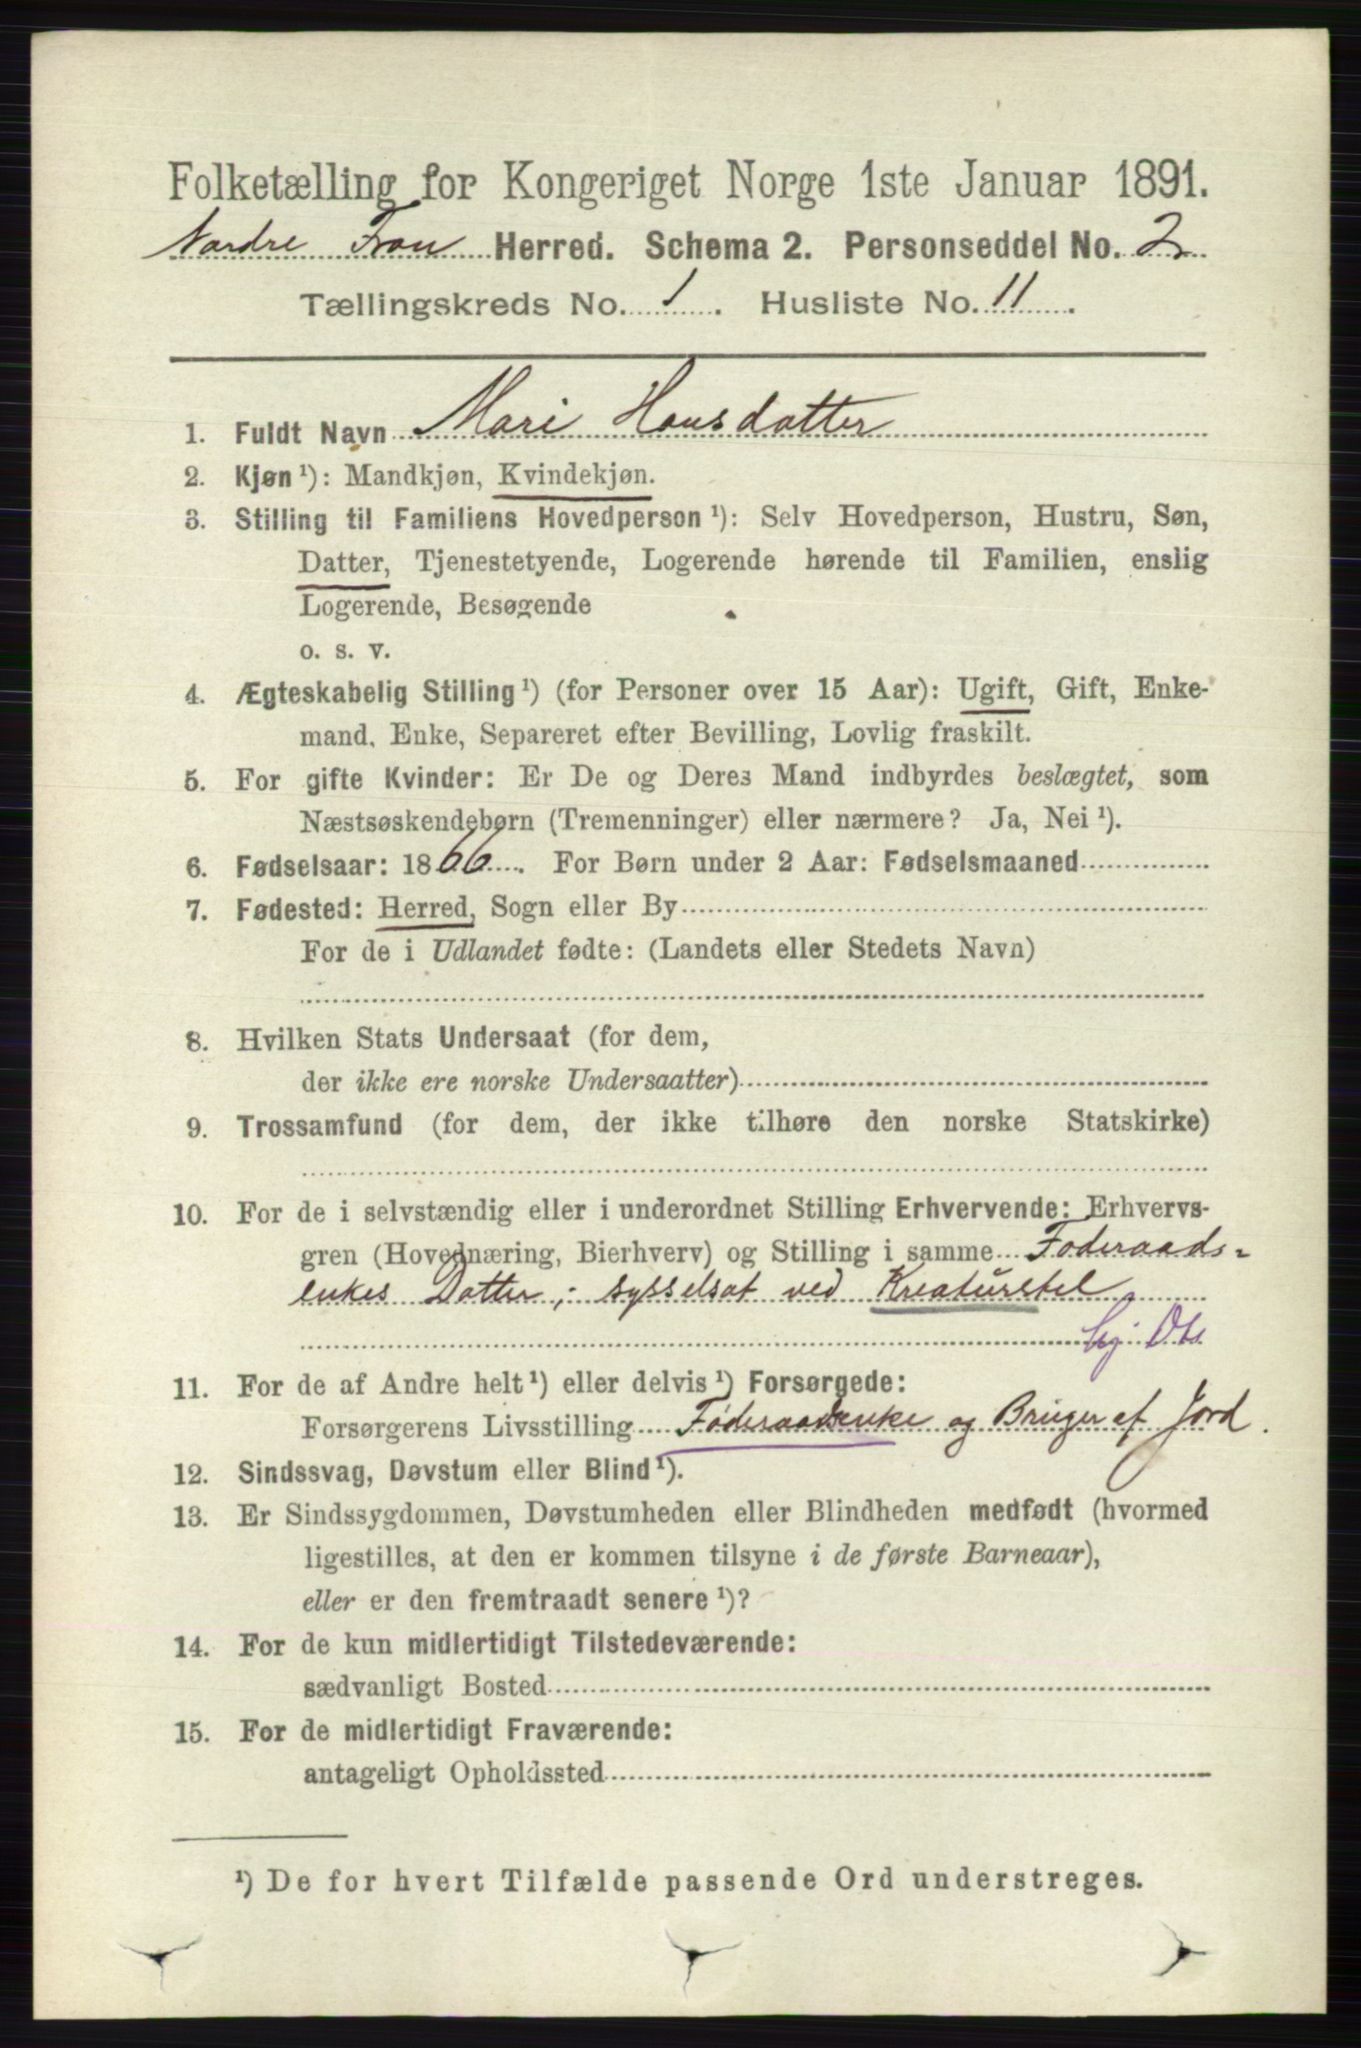 Folketælling for Kongeriget Norge 1ste Januar 1891.
Nordre Fron Herred. Schema 2. Personseddel No. 2
Tællingskreds No. 1. Husliste No. 11.
1. Fuldt Navn Mari Hansdatter
2. Kjøn ¹): Mandkjøn, Kvindekjøn.
3. Stilling til Familiens Hovedperson ¹): Selv Hovedperson, Hustru, Søn,
Datter, Tjenestetyende, Logerende hørende til Familien, enslig
Logerende, Besøgende
o. s. v.
4. Ægteskabelig Stilling ¹) (for Personer over 15 Aar): Ugift, Gift, Enke-
mand, Enke, Separeret efter Bevilling, Lovlig fraskilt.
5. For gifte Kvinder: Er De og Deres Mand indbyrdes beslægtet, som
Næstsøskendebørn (Tremenninger) eller nærmere? Ja, Nei ¹).
6. Fødselsaar: 1866. For Børn under 2 Aar: Fødselsmaaned
7. Fødested: Herred, Sogn eller By
For de i Udlandet fødte: (Landets eller Stedets Navn)
8. Hvilken Stats Undersaat (for dem,
der ikke ere norske Undersaatter)
9. Trossamfund (for dem, der ikke tilhøre den norske Statskirke)
10. For de i selvstændig eller i underordnet Stilling Erhvervende: Erhvervs-
gren (Hovednæring, Bierhverv) og Stilling i samme Føderaads-
enkes Datter; sysselsat ved Kreaturstel
11. For de af Andre helt ¹) eller delvis ¹) Forsørgede:
Forsørgerens Livsstilling Føderaadsenke og Bruger af Jord.
12. Sindssvag, Døvstum eller Blind ¹).
13. Er Sindssygdommen, Døvstumheden eller Blindheden medfødt (hvormed
ligestilles, at den er kommen tilsyne i de første Barneaar),
eller er den fremtraadt senere ¹)?
14. For de kun midlertidigt Tilstedeværende:
sædvanligt Bosted
15. For de midlertidigt Fraværende:
antageligt Opholdssted
¹) De for hvert Tilfælde passende Ord understreges.